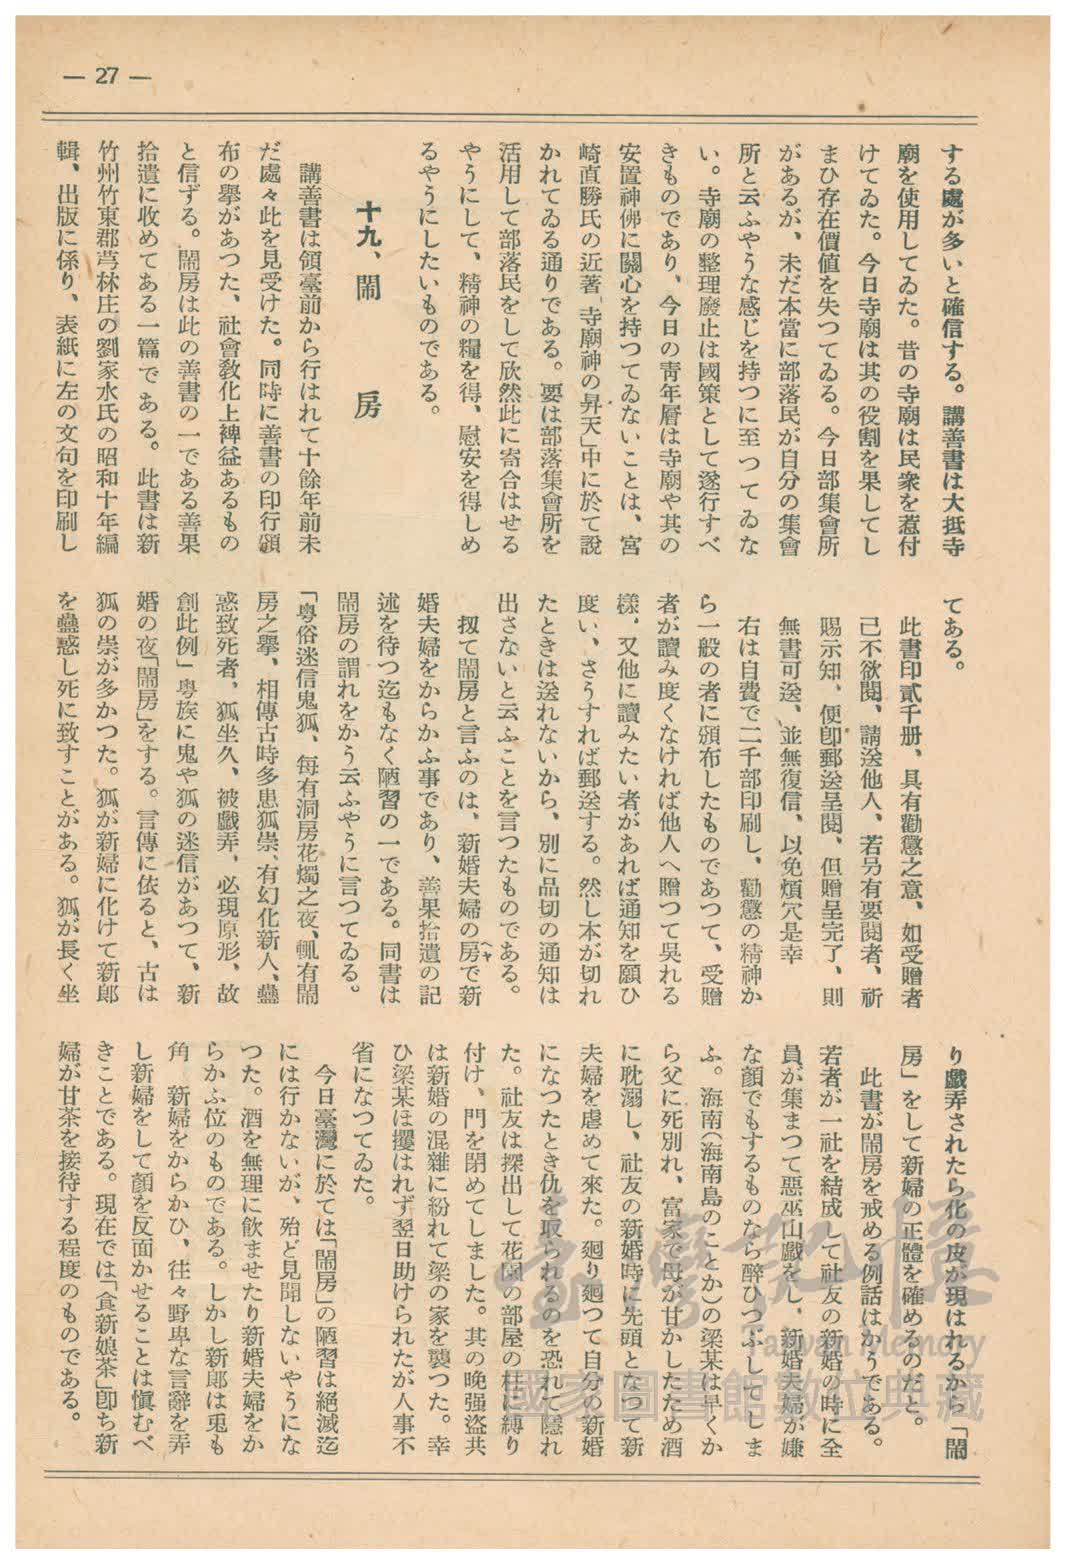 — 27 —
する處が多いと確信する。講善書は大抵寺
廟を使用してゐた。昔の寺廟は民衆を惹付
けてゐた。今日寺廟は其の役割を果してし
まひ存在價値を失つてゐる。今日部集會所
があるが、未だ本當に部落民が自分の集會
所と云ふやうな感じを持つに至つてゐな
い。寺廟の整理廢止は國策として遂行すべ
きものであり、今日の靑年層は寺廟や其の
安置神佛に關心を持つてゐないことは、宮
崎直勝氏の近著「寺廟神の昇天」中に於て說
かれてゐる通りである。要は部落集會所を
活用して部落民をして欣然此に寄合はせる
やうにして、精神の糧を得、慰安を得しめ
るやうにしたいものである。
十九、鬧房
講善書は領臺前から行はれて十餘年前未
だ處々此を見受けた。同時に善書の印行頒
布の擧があつた、社會敎化上裨益あるもの
と信ずる。鬧房は此の善書の一である善果
拾遺に收めてある一篇である。此書は新
竹州竹東郡芎林庄の劉家水氏の昭和十年編
輯、出版に係り、表紙に左の文句を印刷し
てある。
此書印貳千册、具有勸懲之意、如受贈者
己不欲閱、請送他人、若另有要閱者、祈
賜示知、便卽郵送呈閱、但贈呈完了、則
無書可送、並無復信、以免煩冗是幸
右は自費で二千部印刷し、勸懲の精神か
ら一般の者に頒布したものであつて、受贈
者が讀み度くなければ他人へ贈つて吳れる
樣、又他に讀みたい者があれば通知を願ひ
度い、さうすれば郵送する。然し本が切れ
たときは送れないから、別に品切の通知は
出さないと云ふことを言つたものである。
扨て鬧房と言ふのは、新婚夫婦の房ヘヤで新
婚夫婦をからかふ事であり、善果拾遺の記
述を待つ迄もなく陋習の一である。同書は
鬧房の謂れをかう云ふやうに言つてゐる。
「粤俗迷信鬼狐、每有洞房花燭之夜、輒有鬧
房之擧、相傳古時多患狐祟、有幻化新人、蠱
惑致死者、狐坐久、被戲弄、必現原形、故
創此例」粤族に鬼や狐の迷信があつて、新
婚の夜「鬧房」をする。言傳に依ると、古は
狐の祟が多かつた。狐が新婦に化けて新郞
を蠱惑し死に致すことがある。狐が長く坐
り戲弄されたら化の皮が現はれるから「鬧
房」をして新婦の正體を確めるのだと。
此書が鬧房を戒める例話はかうである。
若者が一社を結成して社友の新婚の時に全
員が集まつて惡巫山戲をし、新婚夫婦が嫌
な顏でもするものなら醉ひつぶしてしま
ふ。海南（海南島のことか）の梁某は早くか
ら父に死別れ、富家で母が甘かしたため酒
に耽溺し、社友の新婚時に先頭となつて新
夫婦を虐めて來た。廻り廻つて自分の新婚
になつたとき仇を取られるのを恐れて隱れ
た。社友は探出して花園の部屋の柱に縛り
付け、門を閉めてしました。其の晚强盜共
は新婚の混雜に紛れて梁の家を襲つた。幸
ひ梁某は攫はれず翌日助けられたが人事不
省になつてゐた。
今日臺灣に於ては「鬧房」の陋習は絕滅迄
には行かないが、殆ど見聞しないやうにな
つた。酒を無理に飮ませたり新婚夫婦をか
らかふ位のものである。しかし新郞は兎も
角　新婦をからかひ、往々野卑な言辭を弄
し新婦をして顏を反面かせることは愼むべ
きことである。現在では「食新娘茶」卽ち新
婦が甘茶を接待する程度のものである。
臺灣記憶
Taiwan Memory
國家圖書館數位典藏